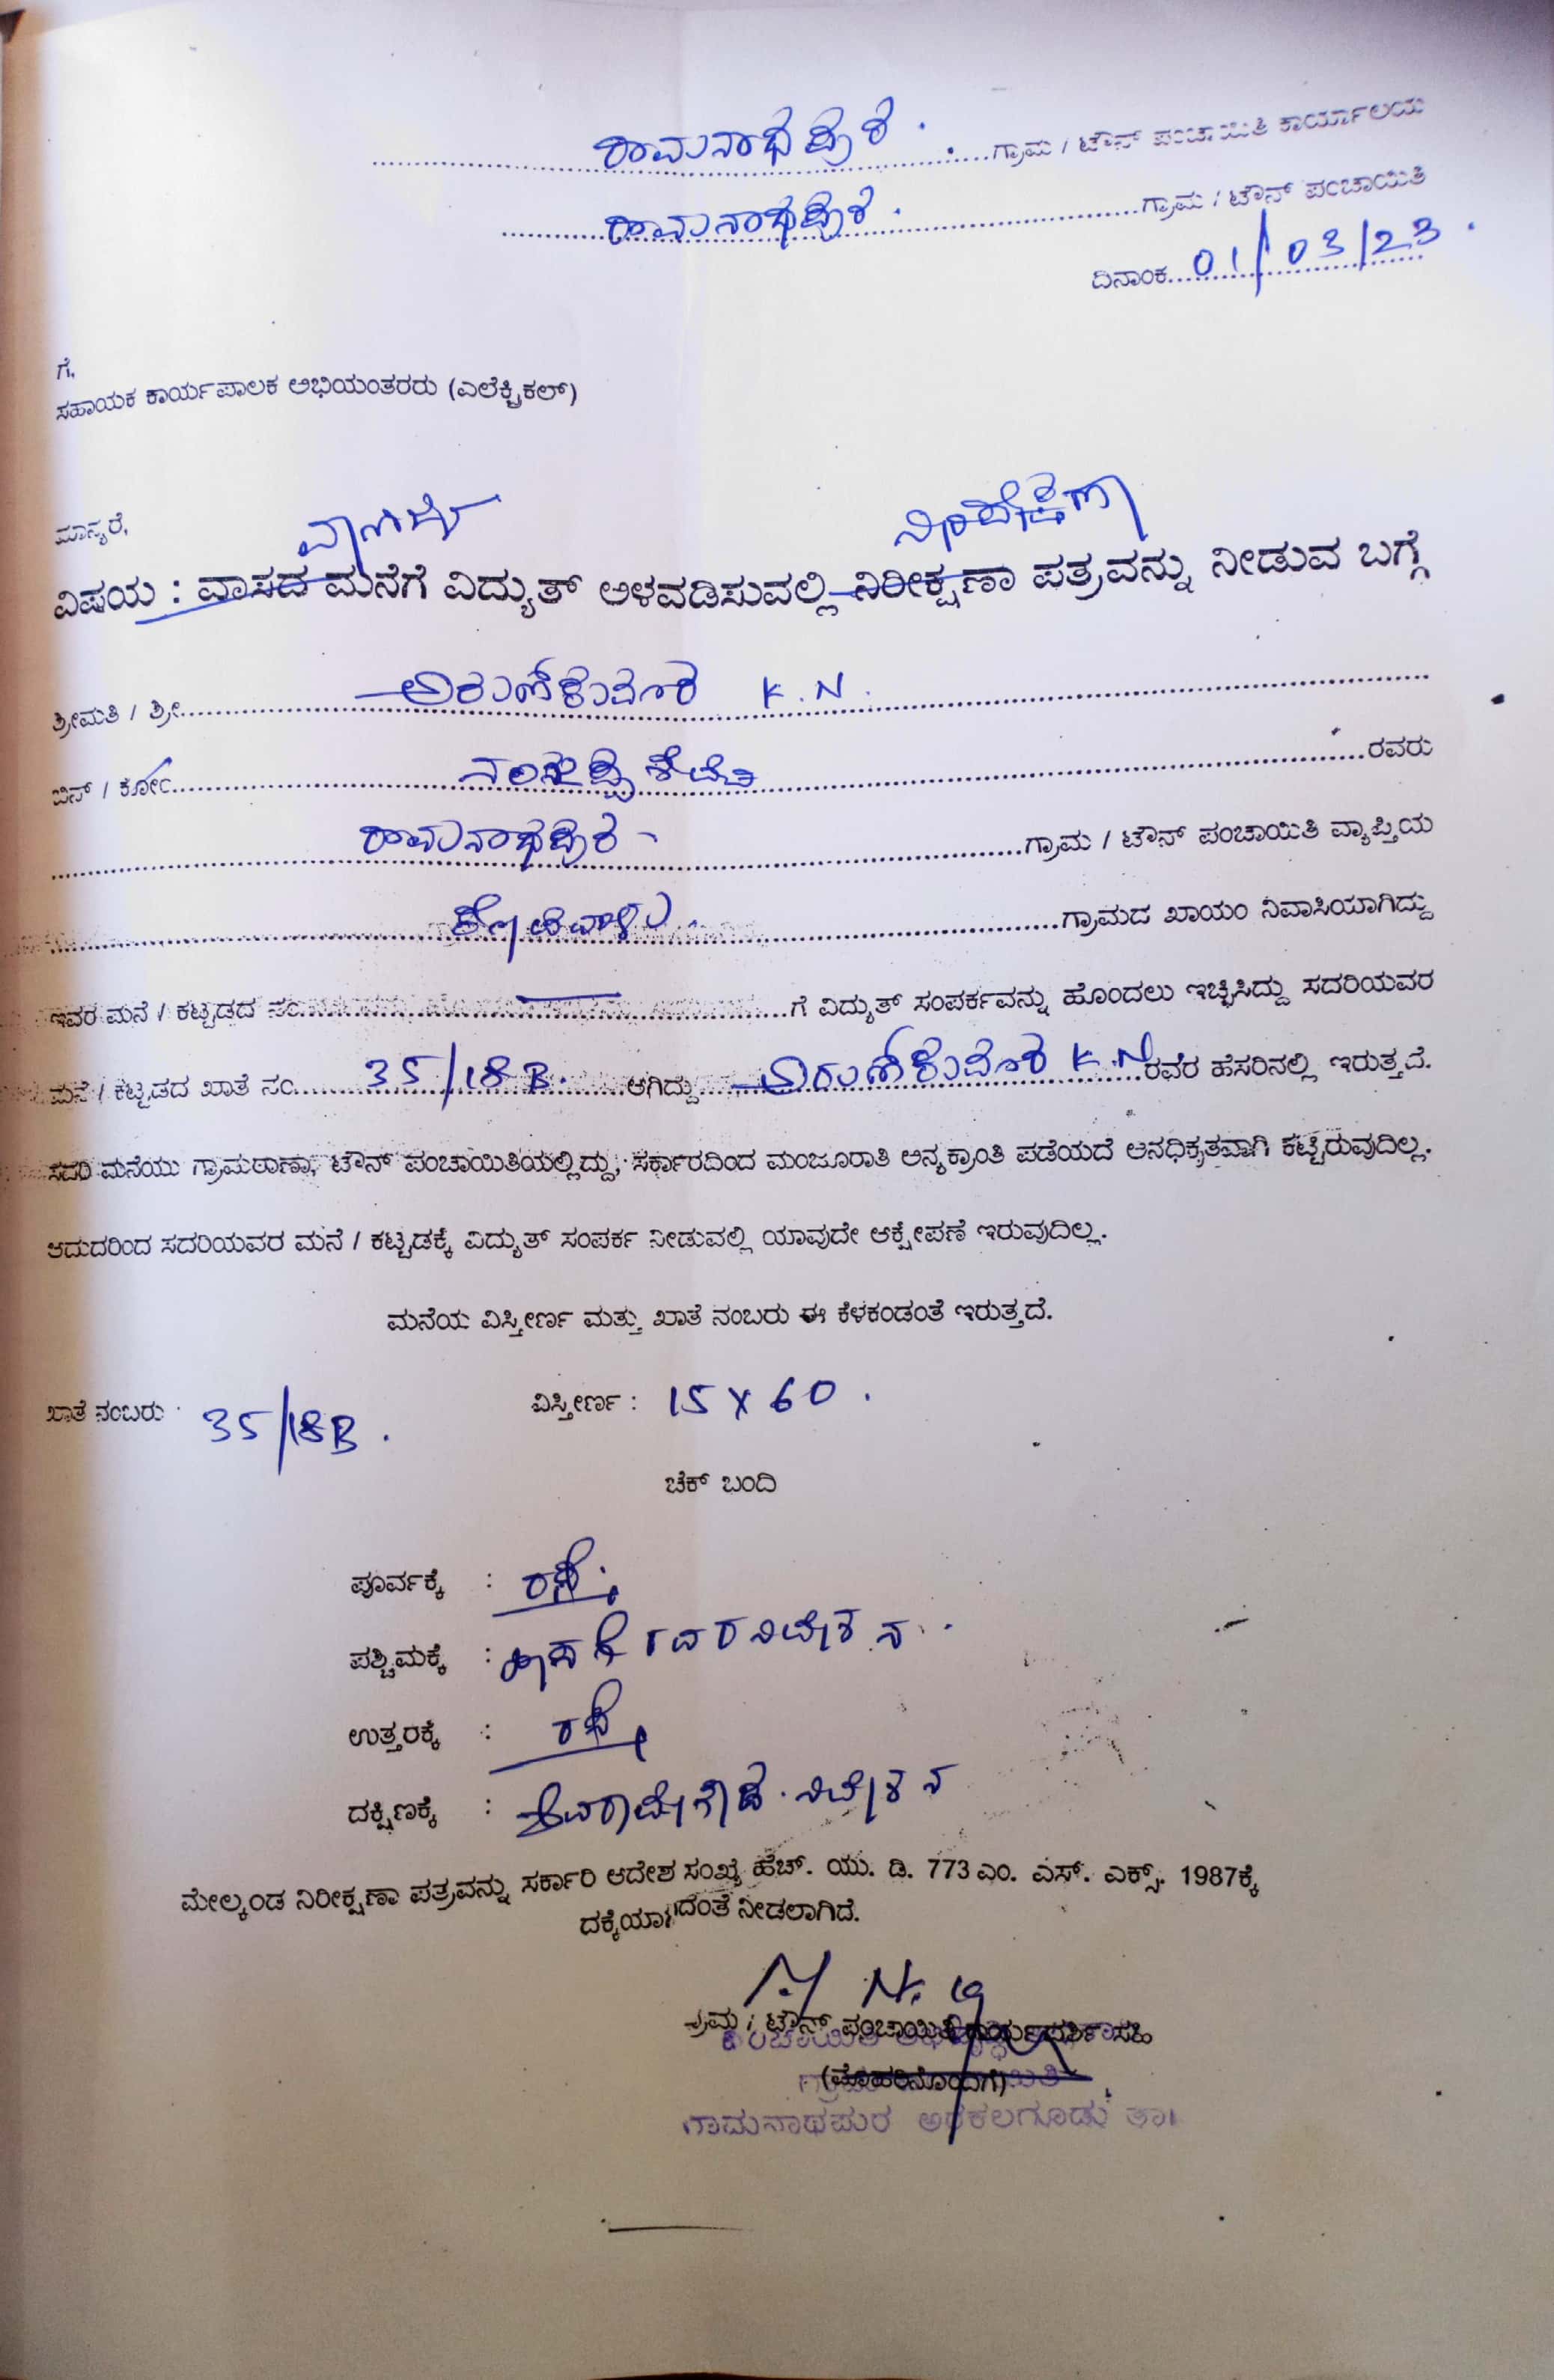 ರಾಮನಾಥಪುರ . ಗ್ರಾಮ / ಟೌನ್ ಪಂಚಾಯಿತಿ ಕಾರ್ಯಾಲಯ
ರಾಮನಾಥಪುರ . ಗ್ರಾಮ / ಟೌನ್ ಪಂಚಾಯಿತಿ
ದಿನಾಂಕ 01/03/23 .
ಗೆ,
ಸಹಾಯಕ ಕಾರ್ಯಪಾಲಕ ಅಭಿಯಂತರರು (ಎಲೆಕ್ಟ್ರಿಕಲ್)
ಮಾನ್ಯರೆ,
ವಾಣಿಜ್ಯ ನಿರಾಪೇಕ್ಷಣಾ
ವಿಷಯ : ವಾಸದ ಮನೆಗೆ ವಿದ್ಯುತ್ ಅಳವಡಿಸುವಲ್ಲಿ ನಿರೀಕ್ಷಣಾ ಪತ್ರವನ್ನು ನೀಡುವ ಬಗ್ಗೆ
ಶ್ರೀಮತಿ / ಶ್ರೀ. ಅರುಣ್‌ಕುಮಾರ K.N.
ಬಿನ್ / ಕೋಂ ನಂಜಪ್ಪಶೆಟ್ಟಿ ರವರು
ರಾಮನಾಥಪುರ ಗ್ರಾಮ / ಟೌನ್ ಪಂಚಾಯಿತಿ ವ್ಯಾಪ್ತಿಯ
ಗ್ರಾಮದ ಖಾಯಂ ನಿವಾಸಿಯಾಗಿದ್ದು
ಇವರ ಮನೆ / ಕಟ್ಟಡದ ನಂ. ಗೆ ವಿದ್ಯುತ್ ಸಂಪರ್ಕವನ್ನು ಹೊಂದಲು ಇಚ್ಛಿಸಿದ್ದು ಸದರಿಯವರ
ಮನೆ / ಕಟ್ಟಡದ ಖಾತೆ ನಂ. 35/18B. ಆಗಿದ್ದು ಅರುಣ್‌ಕುಮಾರ K.N ರವರ ಹೆಸರಿನಲ್ಲಿ ಇರುತ್ತದೆ.
ಸದರಿ ಮನೆಯು ಗ್ರಾಮಠಾಣಾ, ಟೌನ್ ಪಂಚಾಯಿತಿಯಲ್ಲಿದ್ದು, ಸರ್ಕಾರದಿಂದ ಮಂಜೂರಾತಿ ಅನ್ಯಕ್ರಾಂತಿ ಪಡೆಯದೆ ಅನಧಿಕೃತವಾಗಿ ಕಟ್ಟಿರುವುದಿಲ್ಲ.
ಆದುದರಿಂದ ಸದರಿಯವರ ಮನೆ / ಕಟ್ಟಡಕ್ಕೆ ವಿದ್ಯುತ್ ಸಂಪರ್ಕ ನೀಡುವಲ್ಲಿ ಯಾವುದೇ ಆಕ್ಷೇಪಣೆ ಇರುವುದಿಲ್ಲ.
ಮನೆಯ ವಿಸ್ತೀರ್ಣ ಮತ್ತು ಖಾತೆ ನಂಬರು ಈ ಕೆಳಕಂಡಂತೆ ಇರುತ್ತದೆ.
ಖಾತೆ ನಂಬರು 35/18B . ವಿಸ್ತೀರ್ಣ : 15 X 60 .
ಚೆಕ್ ಬಂದಿ
ಪೂರ್ವಕ್ಕೆ : ರಸ್ತೆ.
ಪಶ್ಚಿಮಕ್ಕೆ : ರವರ ನಿವೇಶನ .
ಉತ್ತರಕ್ಕೆ : ರಸ್ತೆ
ದಕ್ಷಿಣಕ್ಕೆ : ನಿವೇಶನ
ಮೇಲ್ಕಂಡ ನಿರೀಕ್ಷಣಾ ಪತ್ರವನ್ನು ಸರ್ಕಾರಿ ಆದೇಶ ಸಂಖ್ಯೆ ಹೆಚ್. ಯು. ಡಿ. 773 ಎಂ. ಎಸ್. ಎಕ್ಸ್. 1987ಕ್ಕೆ
ನೀಡಲಾಗಿದೆ.
ಟೌನ್ ಪಂಚಾಯಿತಿ ಕಾರ್ಯದರ್ಶಿ ಸಹಿ
(ಮೊಹರಿನೊಂದಿಗೆ)
ರಾಮನಾಥಪುರ ಅರಕಲಗೂಡು ತಾ॥